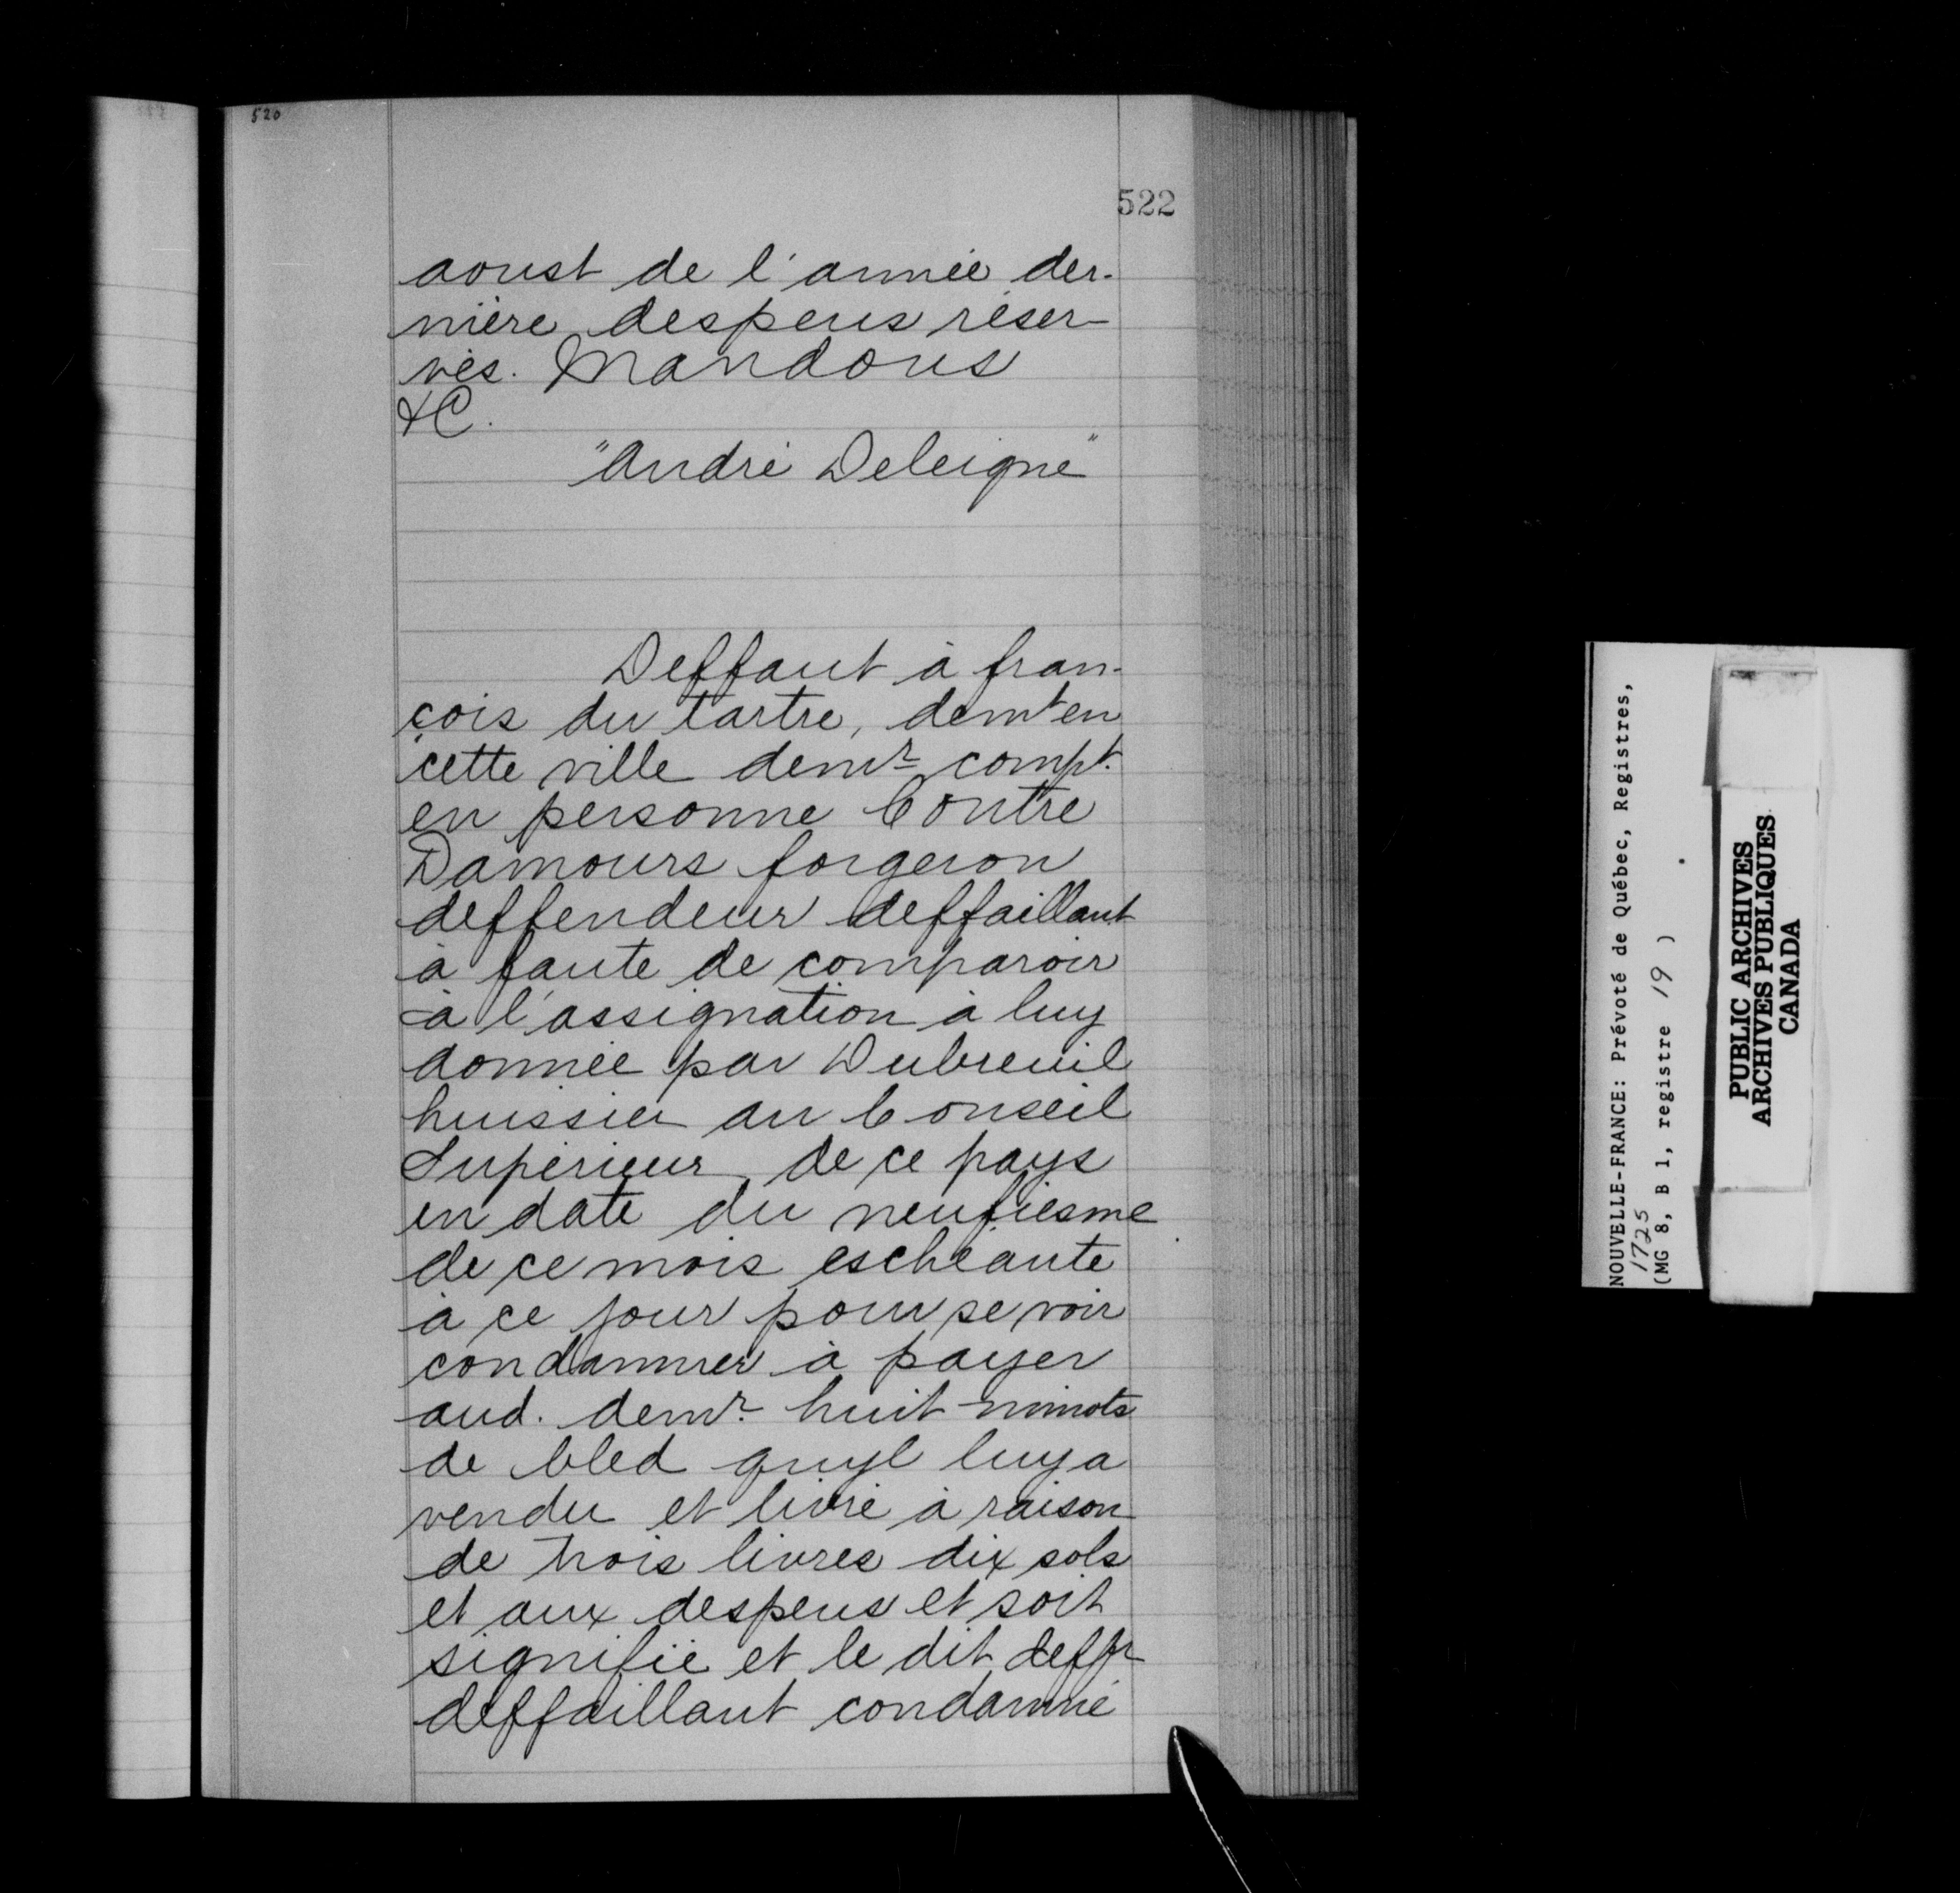 520
522
aoust de l'année der-
nière despens réser-
vés. Mandons
&C.
"André Deleigne"
Deffaut à fran-
çois du tartre, demt en
cette ville demr compt
en personne Contre
Damours forgeron
deffendeur deffaillant
à faute de comparoir
à l'assignation à luy
donnée par Dubreuil
huissier au Conseil
Supérieur de ce pays
en date du neufiesme
de ce mois escheante
à ce jour pour se voir
condamner à payer
aud. demr huit minots
de bled quyl luy a
vendu et livré à raison
de trois livres dix sols
et aux despens et soit
signifié et le dit deffr
deffaillant condamné
NOUVELLE-FRANCE: Prévoté de Québec, Registres,
1725
(MG 8, B 1, registre 19 )
PUBLIC ARCHIVES
ARCHIVES PUBLIQUES
CANADA